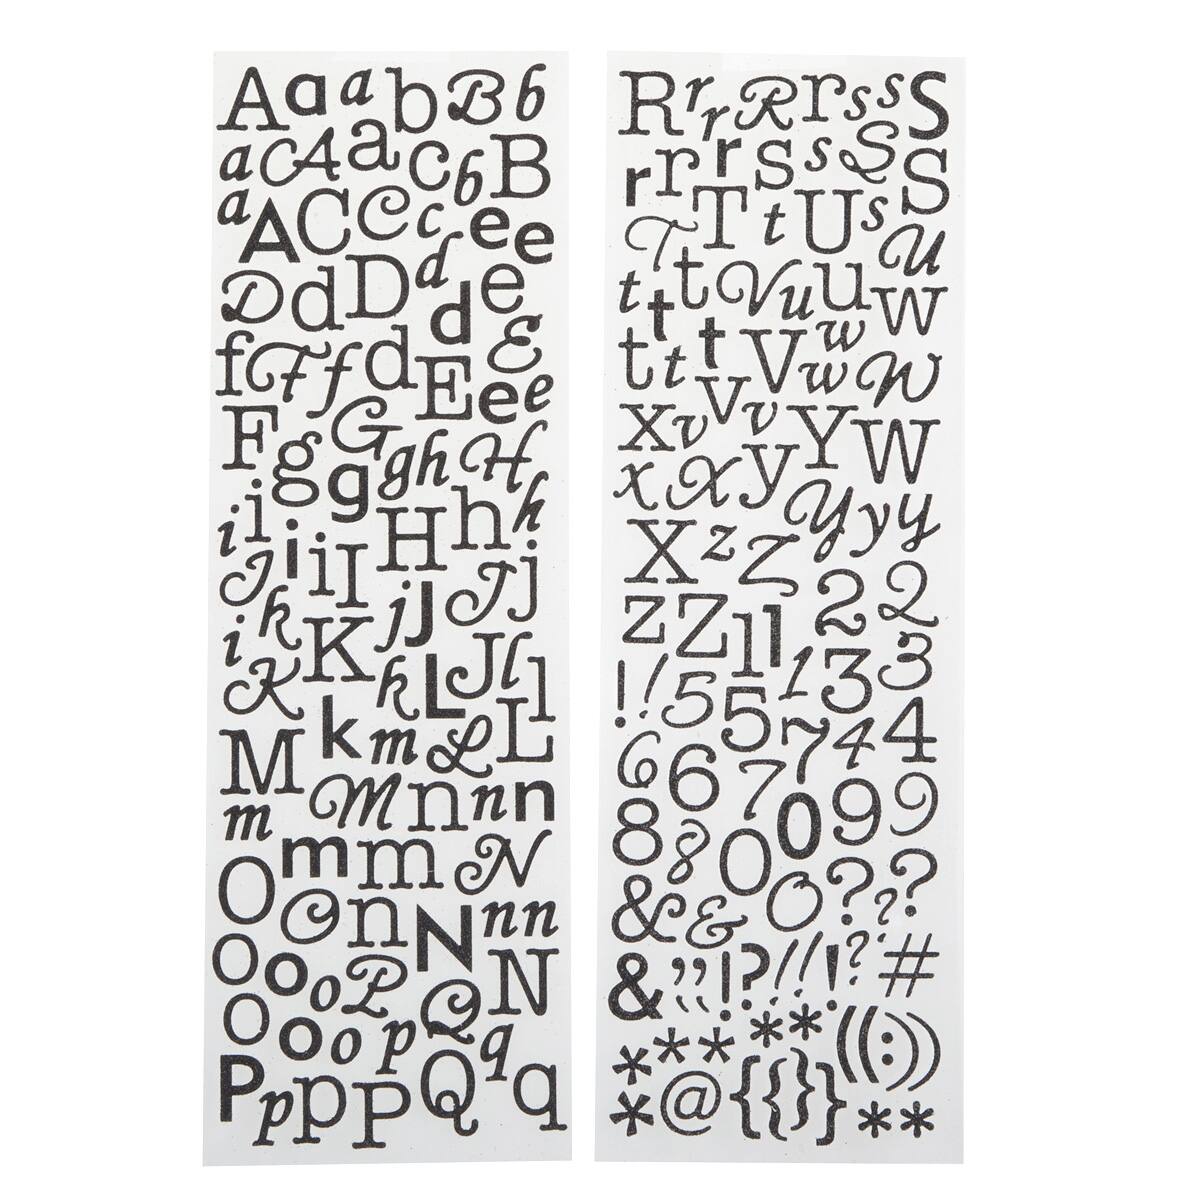 A a a b B b
a C A a c b B
a A C C c e e
D d D d d e
f F f d E E e e
F g G g g h H
i i i i I H h h
J k j J J j
i K K k L J l l
M k m L L
m M n n n
m m N
O O n N n n
o o o P Q N
o o o p q
P p p P Q q
R r r R r s s S
r r r s s S S
T T t U s U
t t t V u u W
t t t V w w W
x v V v Y W
x X y Y y y
X z Z 2 2
z Z 1 1 1 3 3
! ! 5 5 7 4 4
6 6 7 0 9 9
8 8 0 0 ? ? ?
& &
& , , ! ? ! ! ! ? #
* * * * * ( ( : ) )
* @ { { } } * *